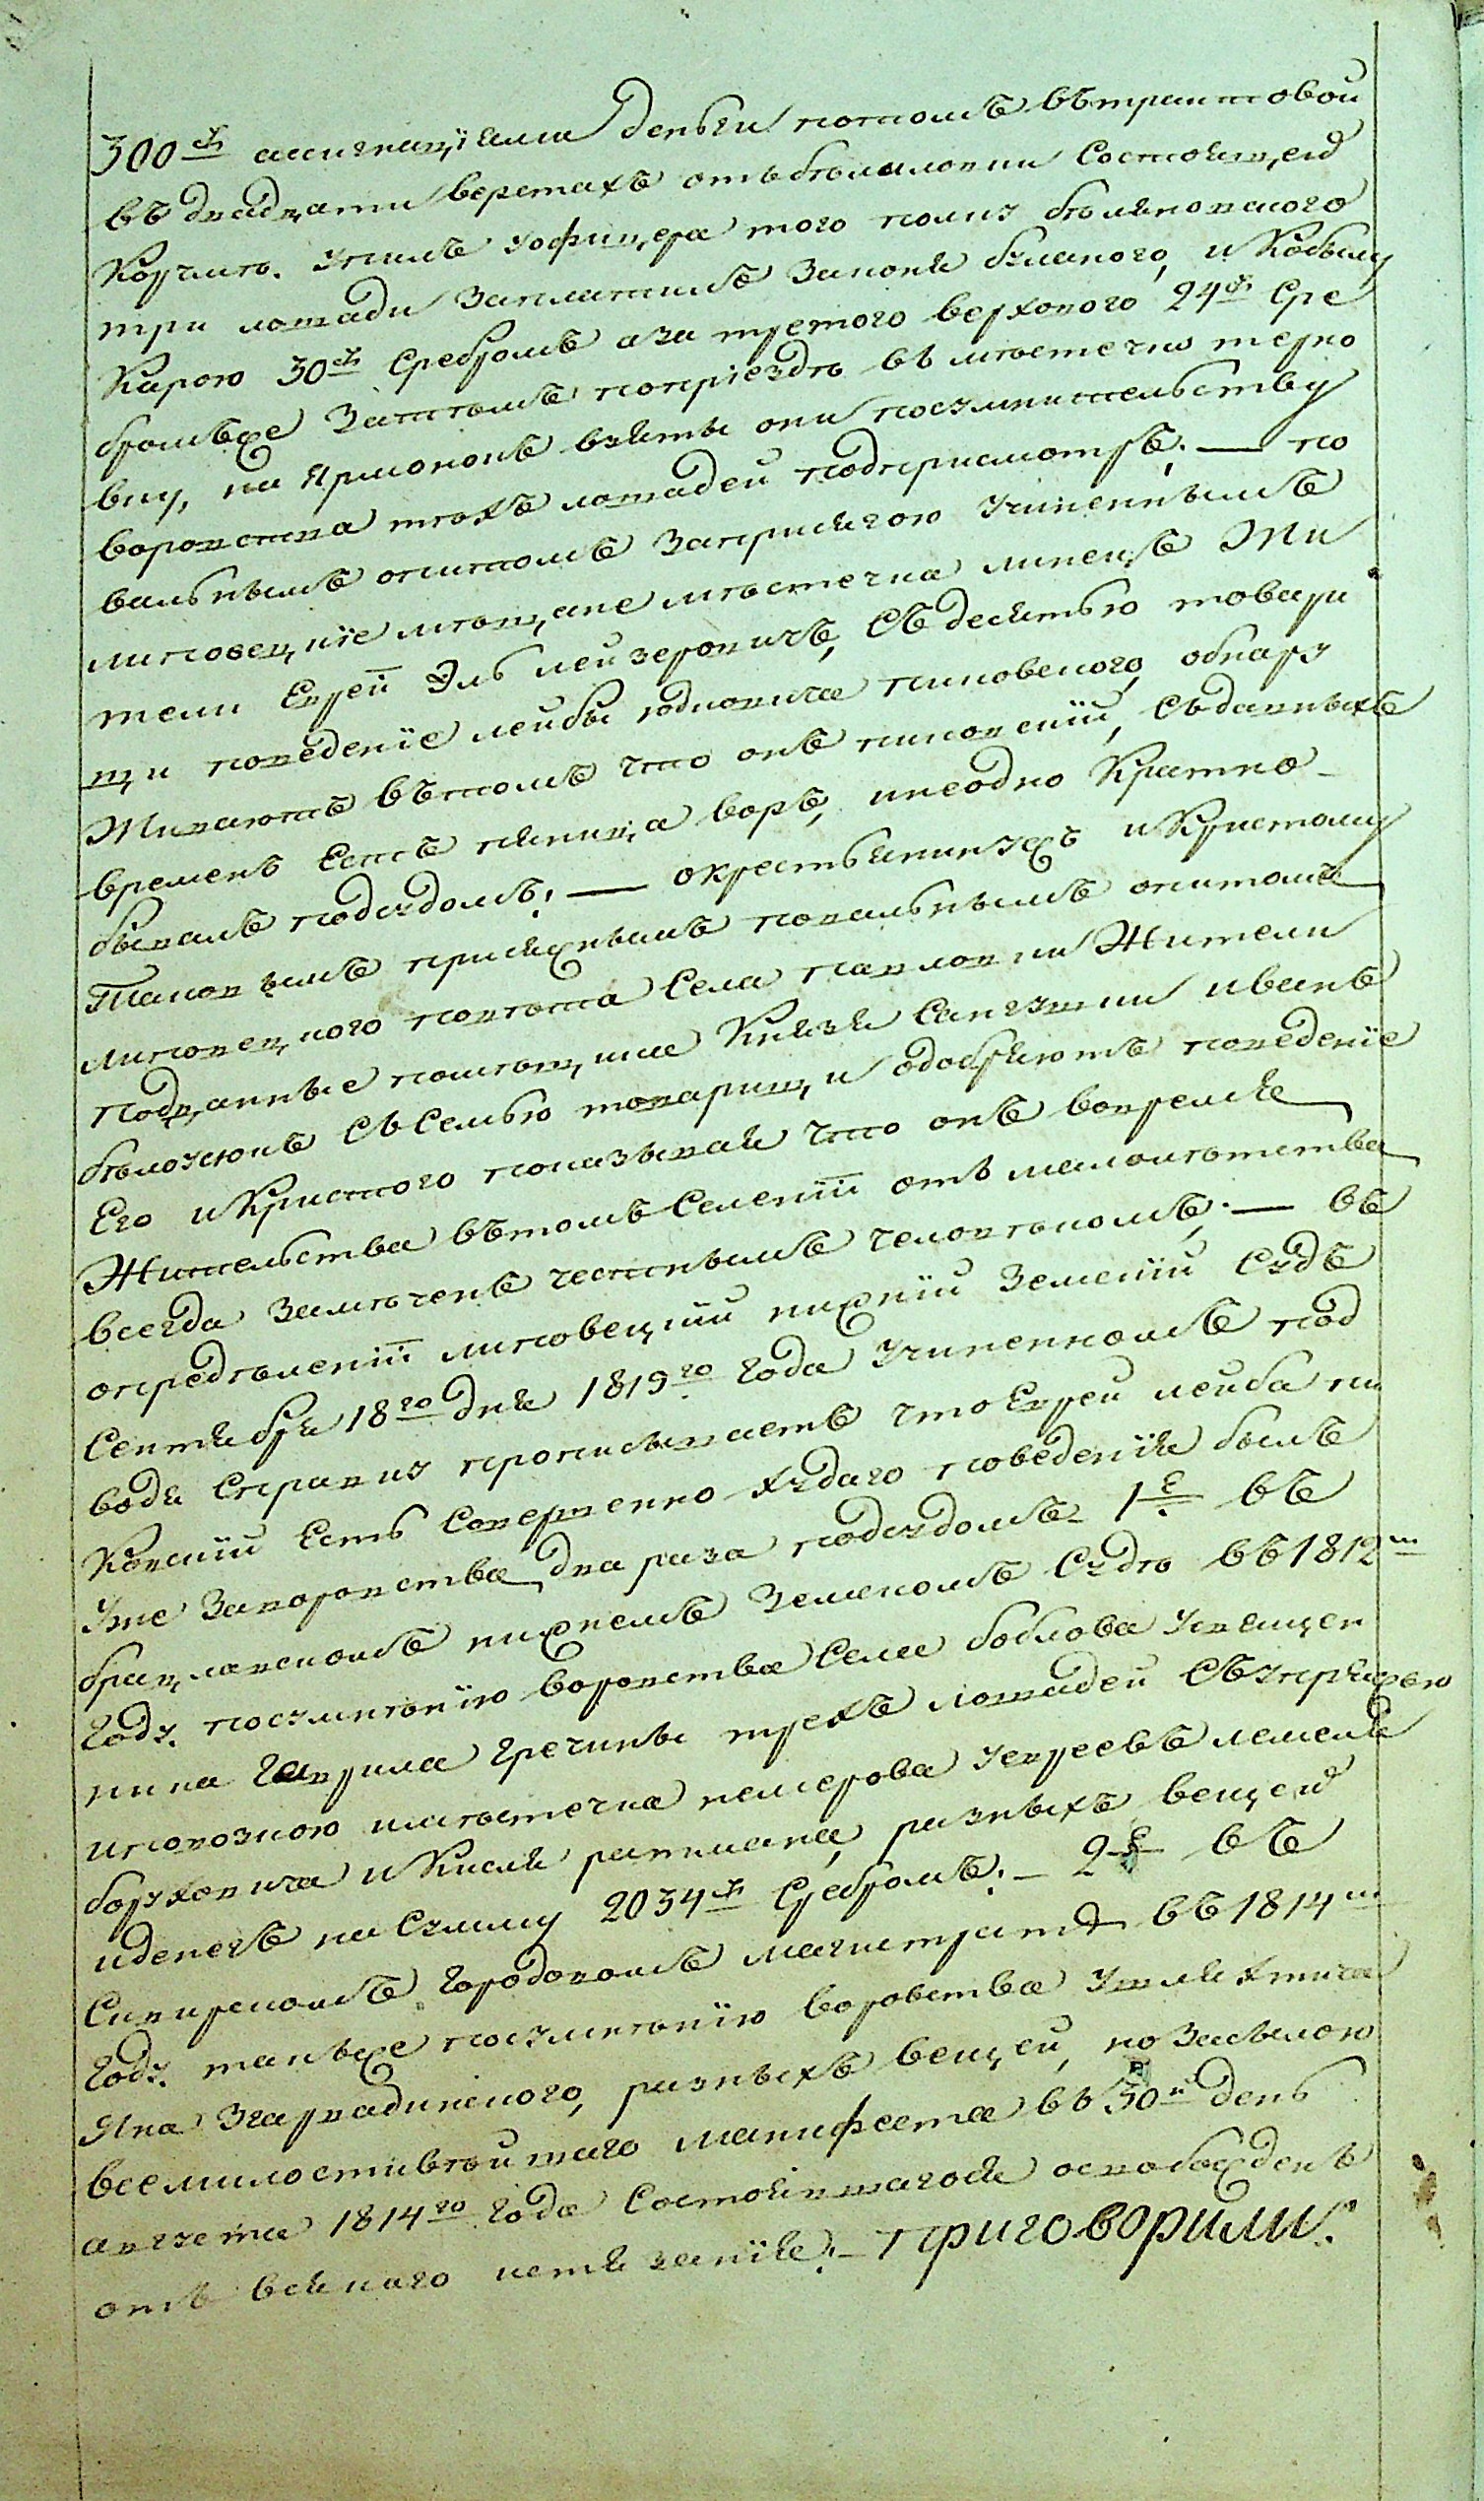 300р ассигнацїями деньги потомъ въ трактовой
въ двадцати верстахъ отъ бѣлиловки состоящей
корчмѣ. купилъ уофицера того полку бѣляковского
три лошади заплатилъ за коня буланого, и кобылу
карою 30р сребромъ а за третого верхового 24р сре
бромъже затѣмъ поприездѣ въ мѣстечко терно
вку, на ярмонокъ взяты они посумнительству
воровства тѣхъ лошадей подприсмотръ. — по
вальнымъ опитомъ заприсягою учиненнымъ
липовецкїе мѣщане мѣстечка линецъ жи
тели Еврей Эль лейзеровичъ, съ десятью товари
щи поведенїе лейбы юдковича пиковского, обнару
живаютъ въ томъ что онъ пиковскїй, съ давныхъ
временъ Есть пяница воръ, инеодно кратно
бывалъ подсудомъ. — окрестьянинужъ и Кристому
таковымъ присяжнымъ повальнымъ опитомъ
липовецкого повѣта села павловки жители
подданные помѣщика князя сангушки иванъ
бѣлоусюкъ съ семью товарищи одобряютъ поведенїе
Его и Кристого показывая что онъ вовремя
жительства въ томъ селенїи отъ малолѣтства
всегда замѣченъ честнымъ человѣкомъ. — въ
определенїи липовецкїй нижнїй земскїй судъ
сентября 18го дня 1819го года учиненномъ под
водя справку прописываетъ что Еврей лейба пи
ковскїй Есть совершенно худаго поведенїя былъ
уже заворовства два раза подсудомъ 1е въ
брацлавскомъ нижнемъ земскомъ судѣ въ 1812м
году. посумнѣнїю воровства села боблова усвящен
ника гаврила гречины трехъ лошадей съ упряжею
иповозкою имѣстечка немерова уевреевъ лемеля
борховича и Кисля ратмана, разныхъ вещей
иденегъ на сумму 2034р сребромъ. — 2е въ
сквирскомъ городовомъ магистратѣ въ 1814м
году. такъже посумнѣнїю воровства ушляхтича
яна загвадинского, разныхъ вещей, но засилою
всемилостивѣйшаго манифеста въ 30й день
августа 1814го года состоявшагося освобожденъ
отъ всякаго истязанїя. — приговорили: